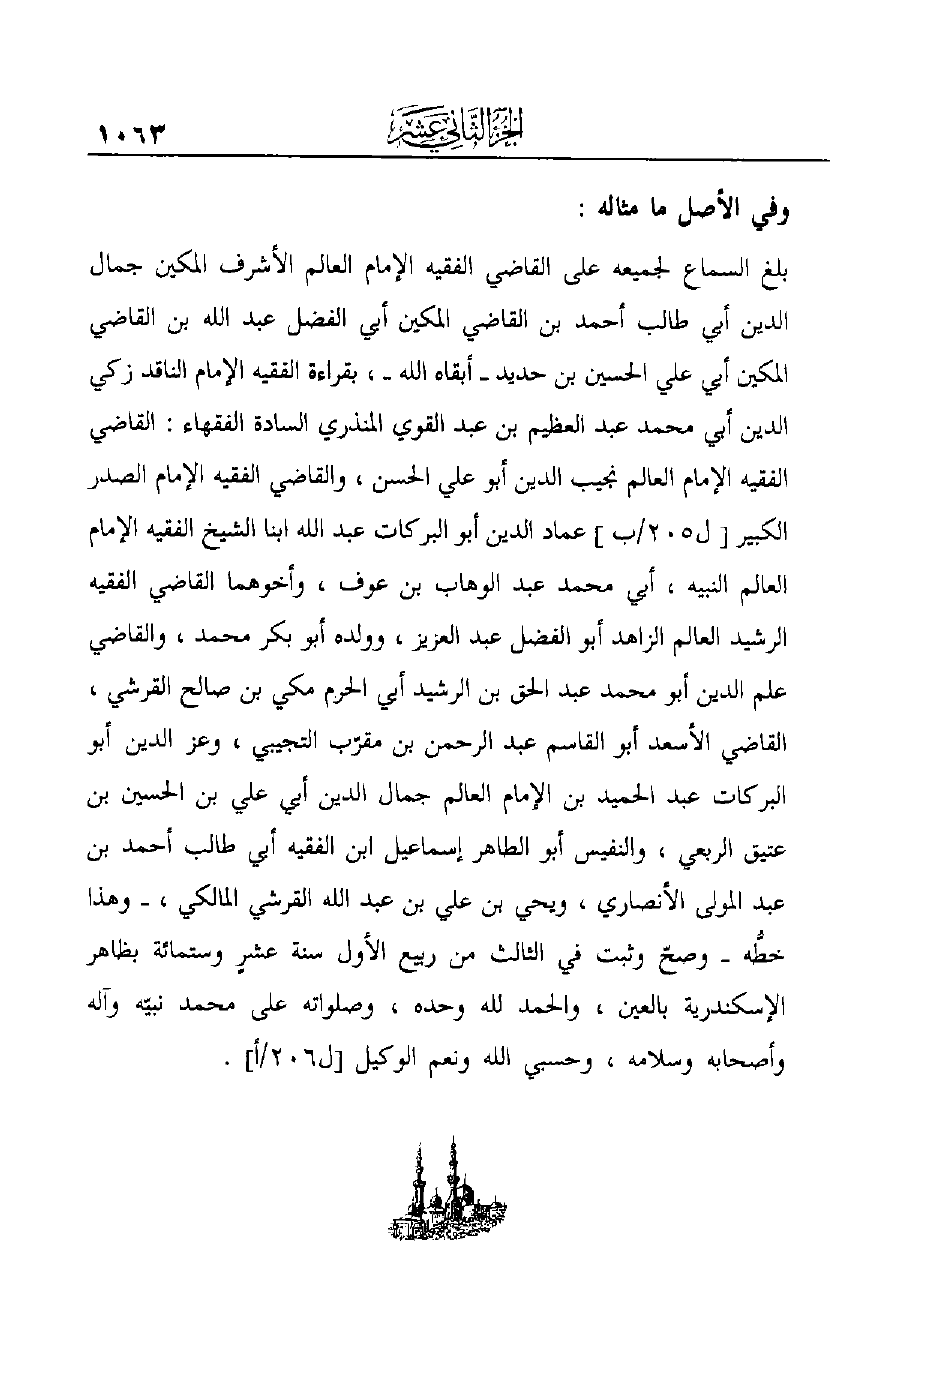 الجزء الثاني عشر ١٠٦٣
وفي الأصل ما مثاله :
بلغ السماع لجميعه على القاضي الفقيه الإمام العالم الأشرف المكين جمال
الدين أبي طالب أحمد بن القاضي المكين أبي الفضل عبد الله بن القاضي
المكين أبي علي الحسين بن حديد ـ أبقاه الله ـ ، بقراءة الفقيه الإمام الناقد زكي
الدين أبي محمد عبد العظيم بن عبد القوي المنذري السادة الفقهاء : القاضي
الفقيه الإمام العالم نجيب الدين أبو علي الحسن ، والقاضي الفقيه الإمام الصدر
الكبير [ ل٢٠٥/ب ] عماد الدين أبو البركات عبد الله ابنا الشيخ الفقيه الإمام
العالم النبيه ، أبي محمد عبد الوهاب بن عوف ، وأخوهما القاضي الفقيه
الرشيد العالم الزاهد أبو الفضل عبد العزيز ، وولده أبو بكر محمد ، والقاضي
علم الدين أبو محمد عبد الحق بن الرشيد أبي الحرم مكي بن صالح القرشي ،
القاضي الأسعد أبو القاسم عبد الرحمن بن مقرّب التجيبي ، وعز الدين أبو
البركات عبد الحميد بن الإمام العالم جمال الدين أبي علي بن الحسين بن
عتيق الربعي ، والنفيس أبو الطاهر إسماعيل ابن الفقيه أبي طالب أحمد بن
عبد المولى الأنصاري ، ويحي بن علي بن عبد الله القرشي المالكي ، ـ وهذا
خطُّه ـ وصحّ وثبت في الثالث من ربيع الأول سنة عشرٍ وستمائة بظاهر
الإسكندرية بالعين ، والحمد لله وحده ، وصلواته على محمد نبيّه وآله
وأصحابه وسلامه ، وحسبي الله ونعم الوكيل [ل٢٠٦/أ] .